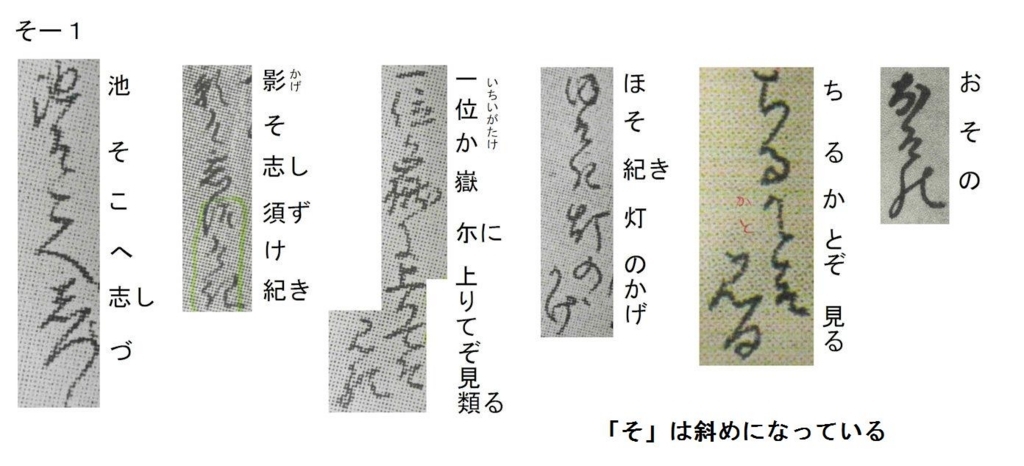 そー１
おそのの
ちるかとぞ見る
かと
ほそ紀き灯のかげ
いちいがたけ
一位か嶽尓に上りてぞ見類る
かげ
影そ志し須ずけ紀き
池そこへ志しづ
「そ」は斜めになっている